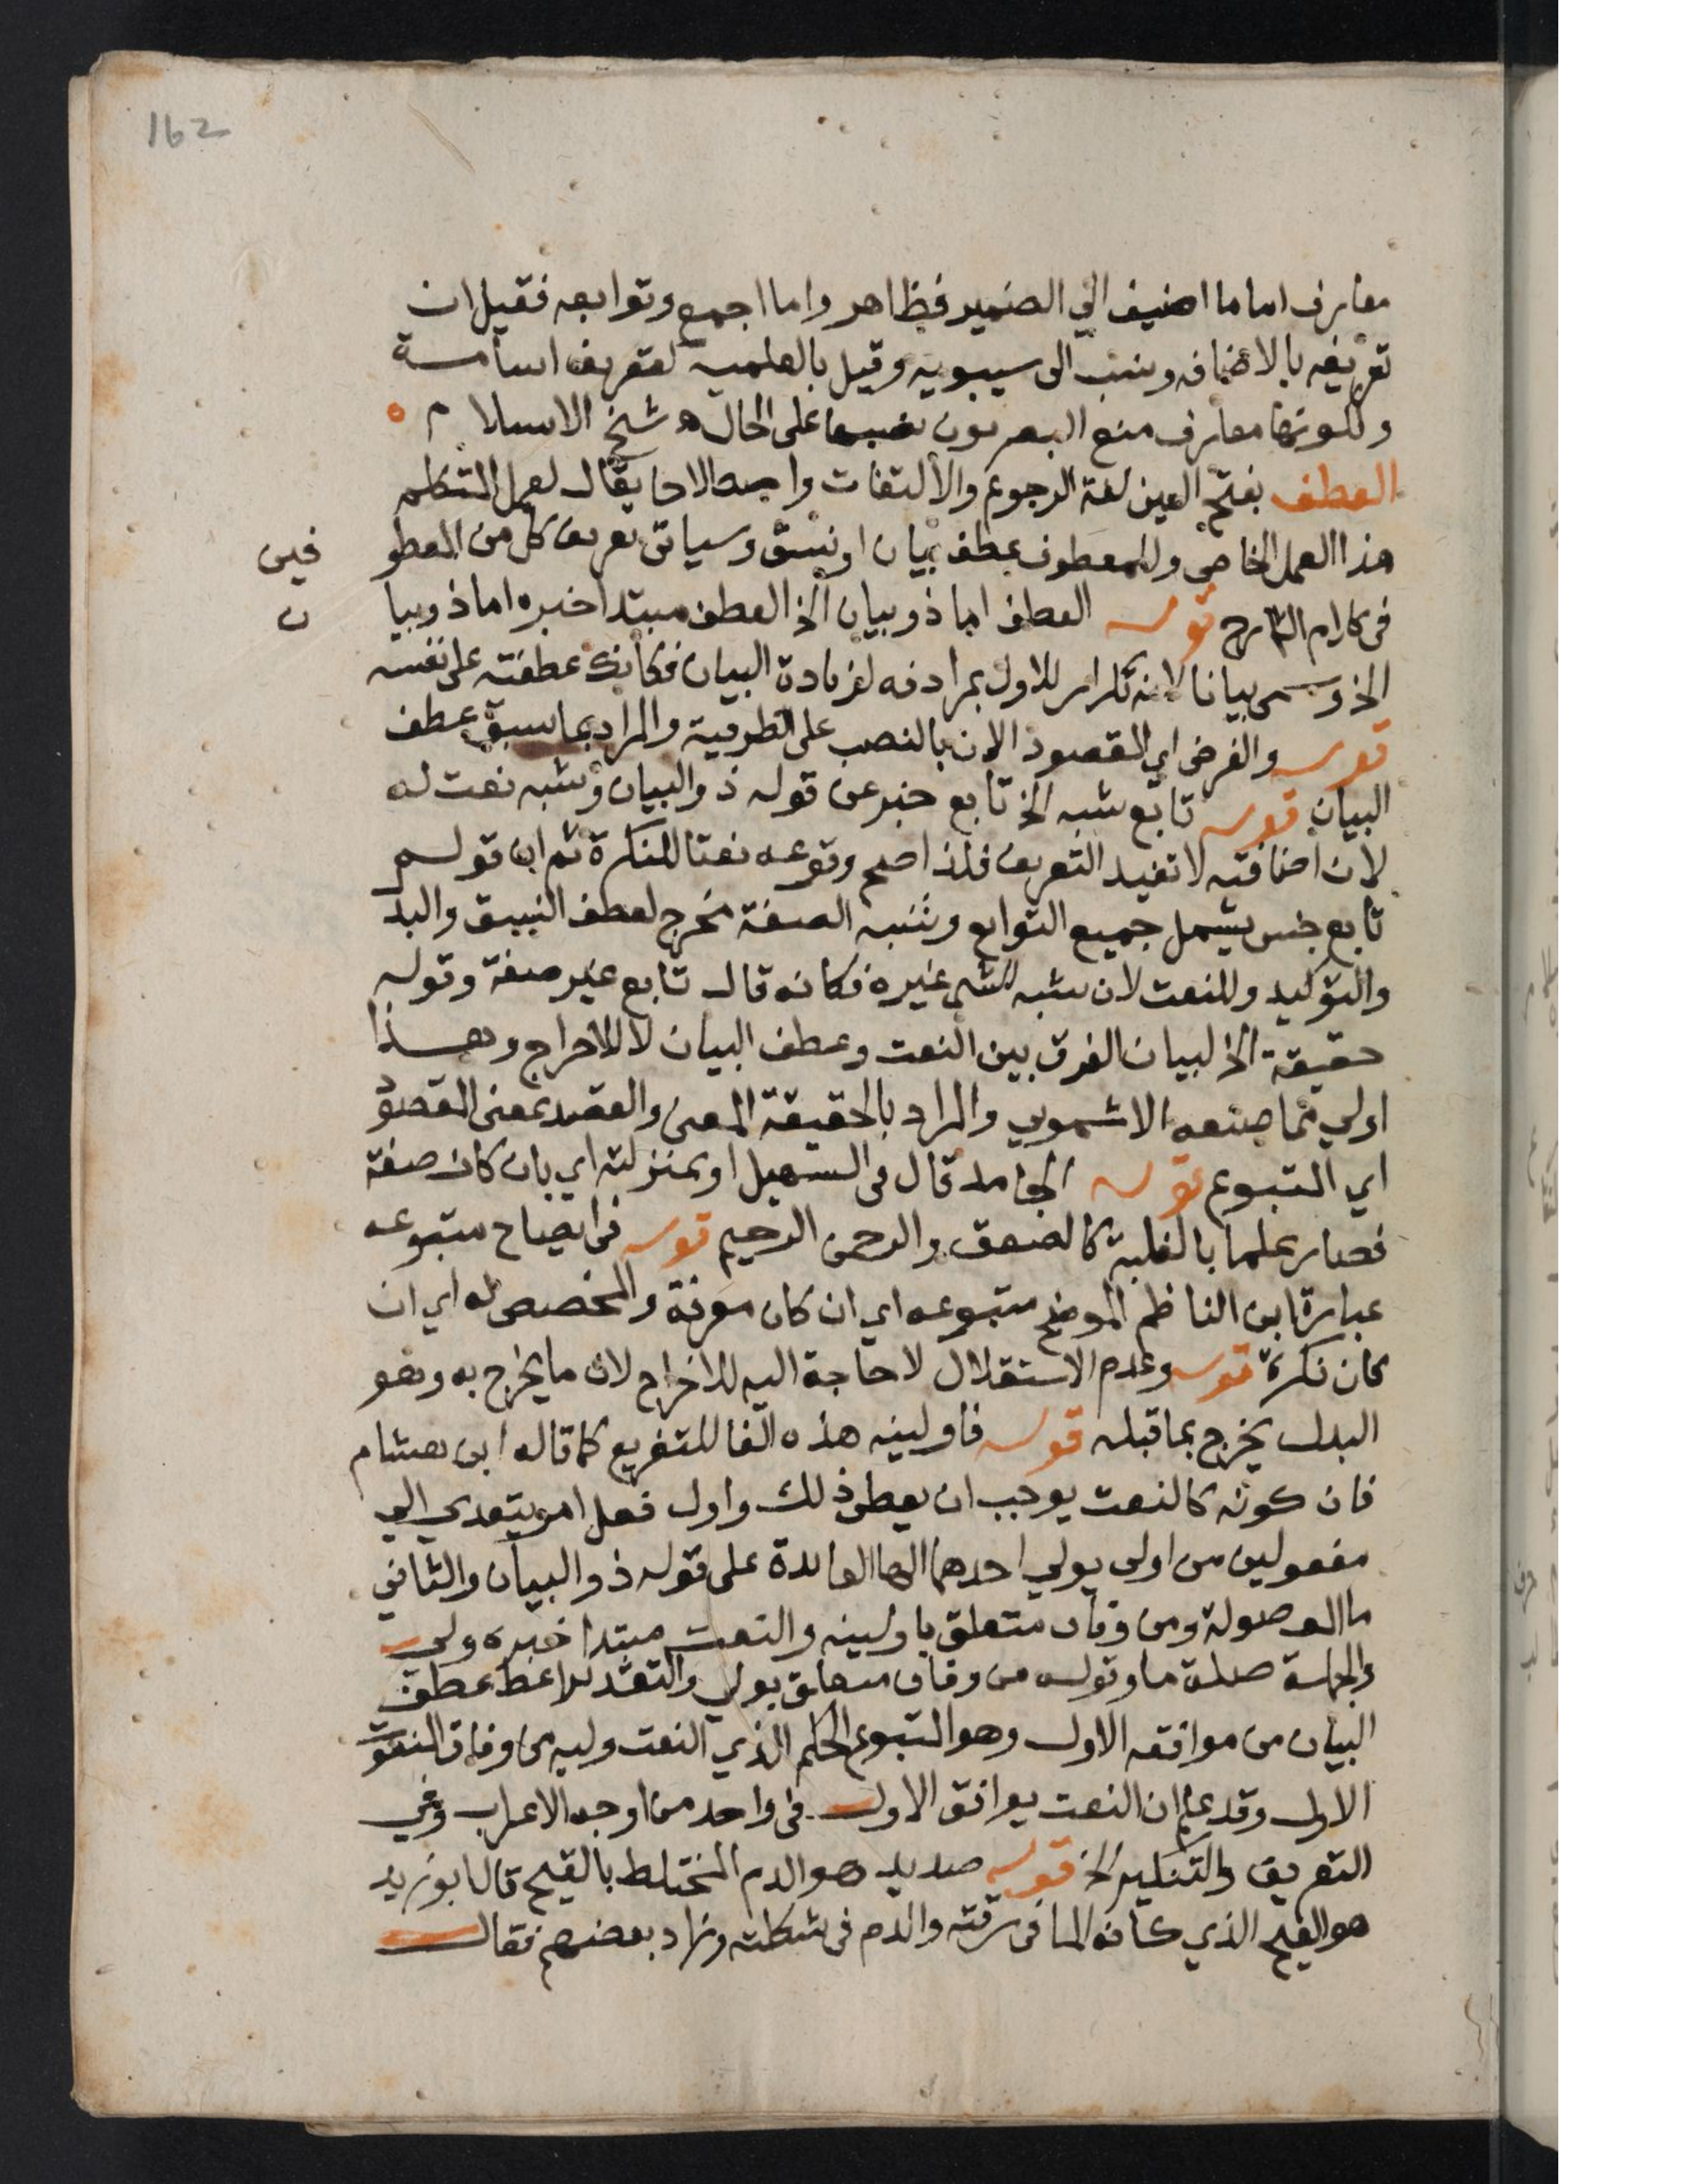 162
معارف اما ما اضيف الي الضمير فظاهر واما اجمع وتوابعه فقيل ان
تعريفه بالاضافه ونسب الى سيبويه وقيل بالعلميه لتعريف اسامة
ولكونها معارف منع البصريون نصبها على الحال ه شيخ الاسلام ٥
العطف بفتح العين لغة الرجوع والالتفات واصطلاحا يقال لعمل المتكلم
هذا العمل الخاص وللمعطوف عطف بيان او نسق وسياتى تعريف كل من المعطو فين
فى كلام الشارح قوله العطف اما ذو بيان الخ العطف مبتدا خبره اما ذو بيا ن
الخ وسمى بيانا لانه تكرار للاول بمرادفه لزيادة البيان فكانك عطفته على نفسه
قوله والغرض اي المقصود الان بالنصب على الظرفية والمراد بما سبق عطف
البيان قوله تابع شبه الخ تابع خبر عن قوله ذو البيان وشبه نعت له
لان اضافته لا تفيد التعريف فلذا صح وقوعه نعتا للنكرة ثم ان قولهم
تابع جنس يشمل جميع التوابع وشبه الصفة مخرج لعطف النسق والبد
والتوكيد وللنعت لان شبه الشى غيره فكانه قال تابع غير صفة وقوله
حقيقة الخ لبيان الفرق بين النعت وعطف البيان لا للاخراج وهذا
اولي مما صنعه الاشموني والمراد بالحقيقة المعنى والقصد بمعنى المقصود
اي المتبوع قوله الجامد قال فى التسهيل او بمنزلته اي بان كان صفة
فصار علما بالغلبة كالصعق والرحمن الرحيم قوله فى ايضاح متبوعه
عبارة ابن الناظم الموضح متبوعه اي ان كان معرفة والمخصص له اي ان
كان نكرة قوله وعدم الاستقلال لا حاجة اليه للاخراج لان ما يخرج به وهو
البدل يخرج بما قبله قوله فاولينه هذه الفا للتفريع كما قاله ابن هشام
فان كونه كالنعت يوجب ان يعطى ذلك واول فعل امر يتعدي الي
مفعولين من اولى يولي احدهما الها العائدة على قوله ذو البيان والثاني
ما الموصولة ومن وفاق متعلق باولينه والنعت مبتدا خبره ولى
والجملة صلة ما وقوله من وفاق متعلق بولي والتقدير اعط عطف
البيان من موافقه الاول وهو المتبوع الحكم الذي النعت وليه من وفاق المنعوت
الاول وقد علم ان النعت يوافق الاول فى واحد من اوجه الاعراب وفي
التعريف والتنكير الخ قوله صديد هو الدم المختلط بالقيح قال ابو زيد
هو القيح الذي كانه الما فى رقته والدم فى شكلته وزاد بعضهم فقال